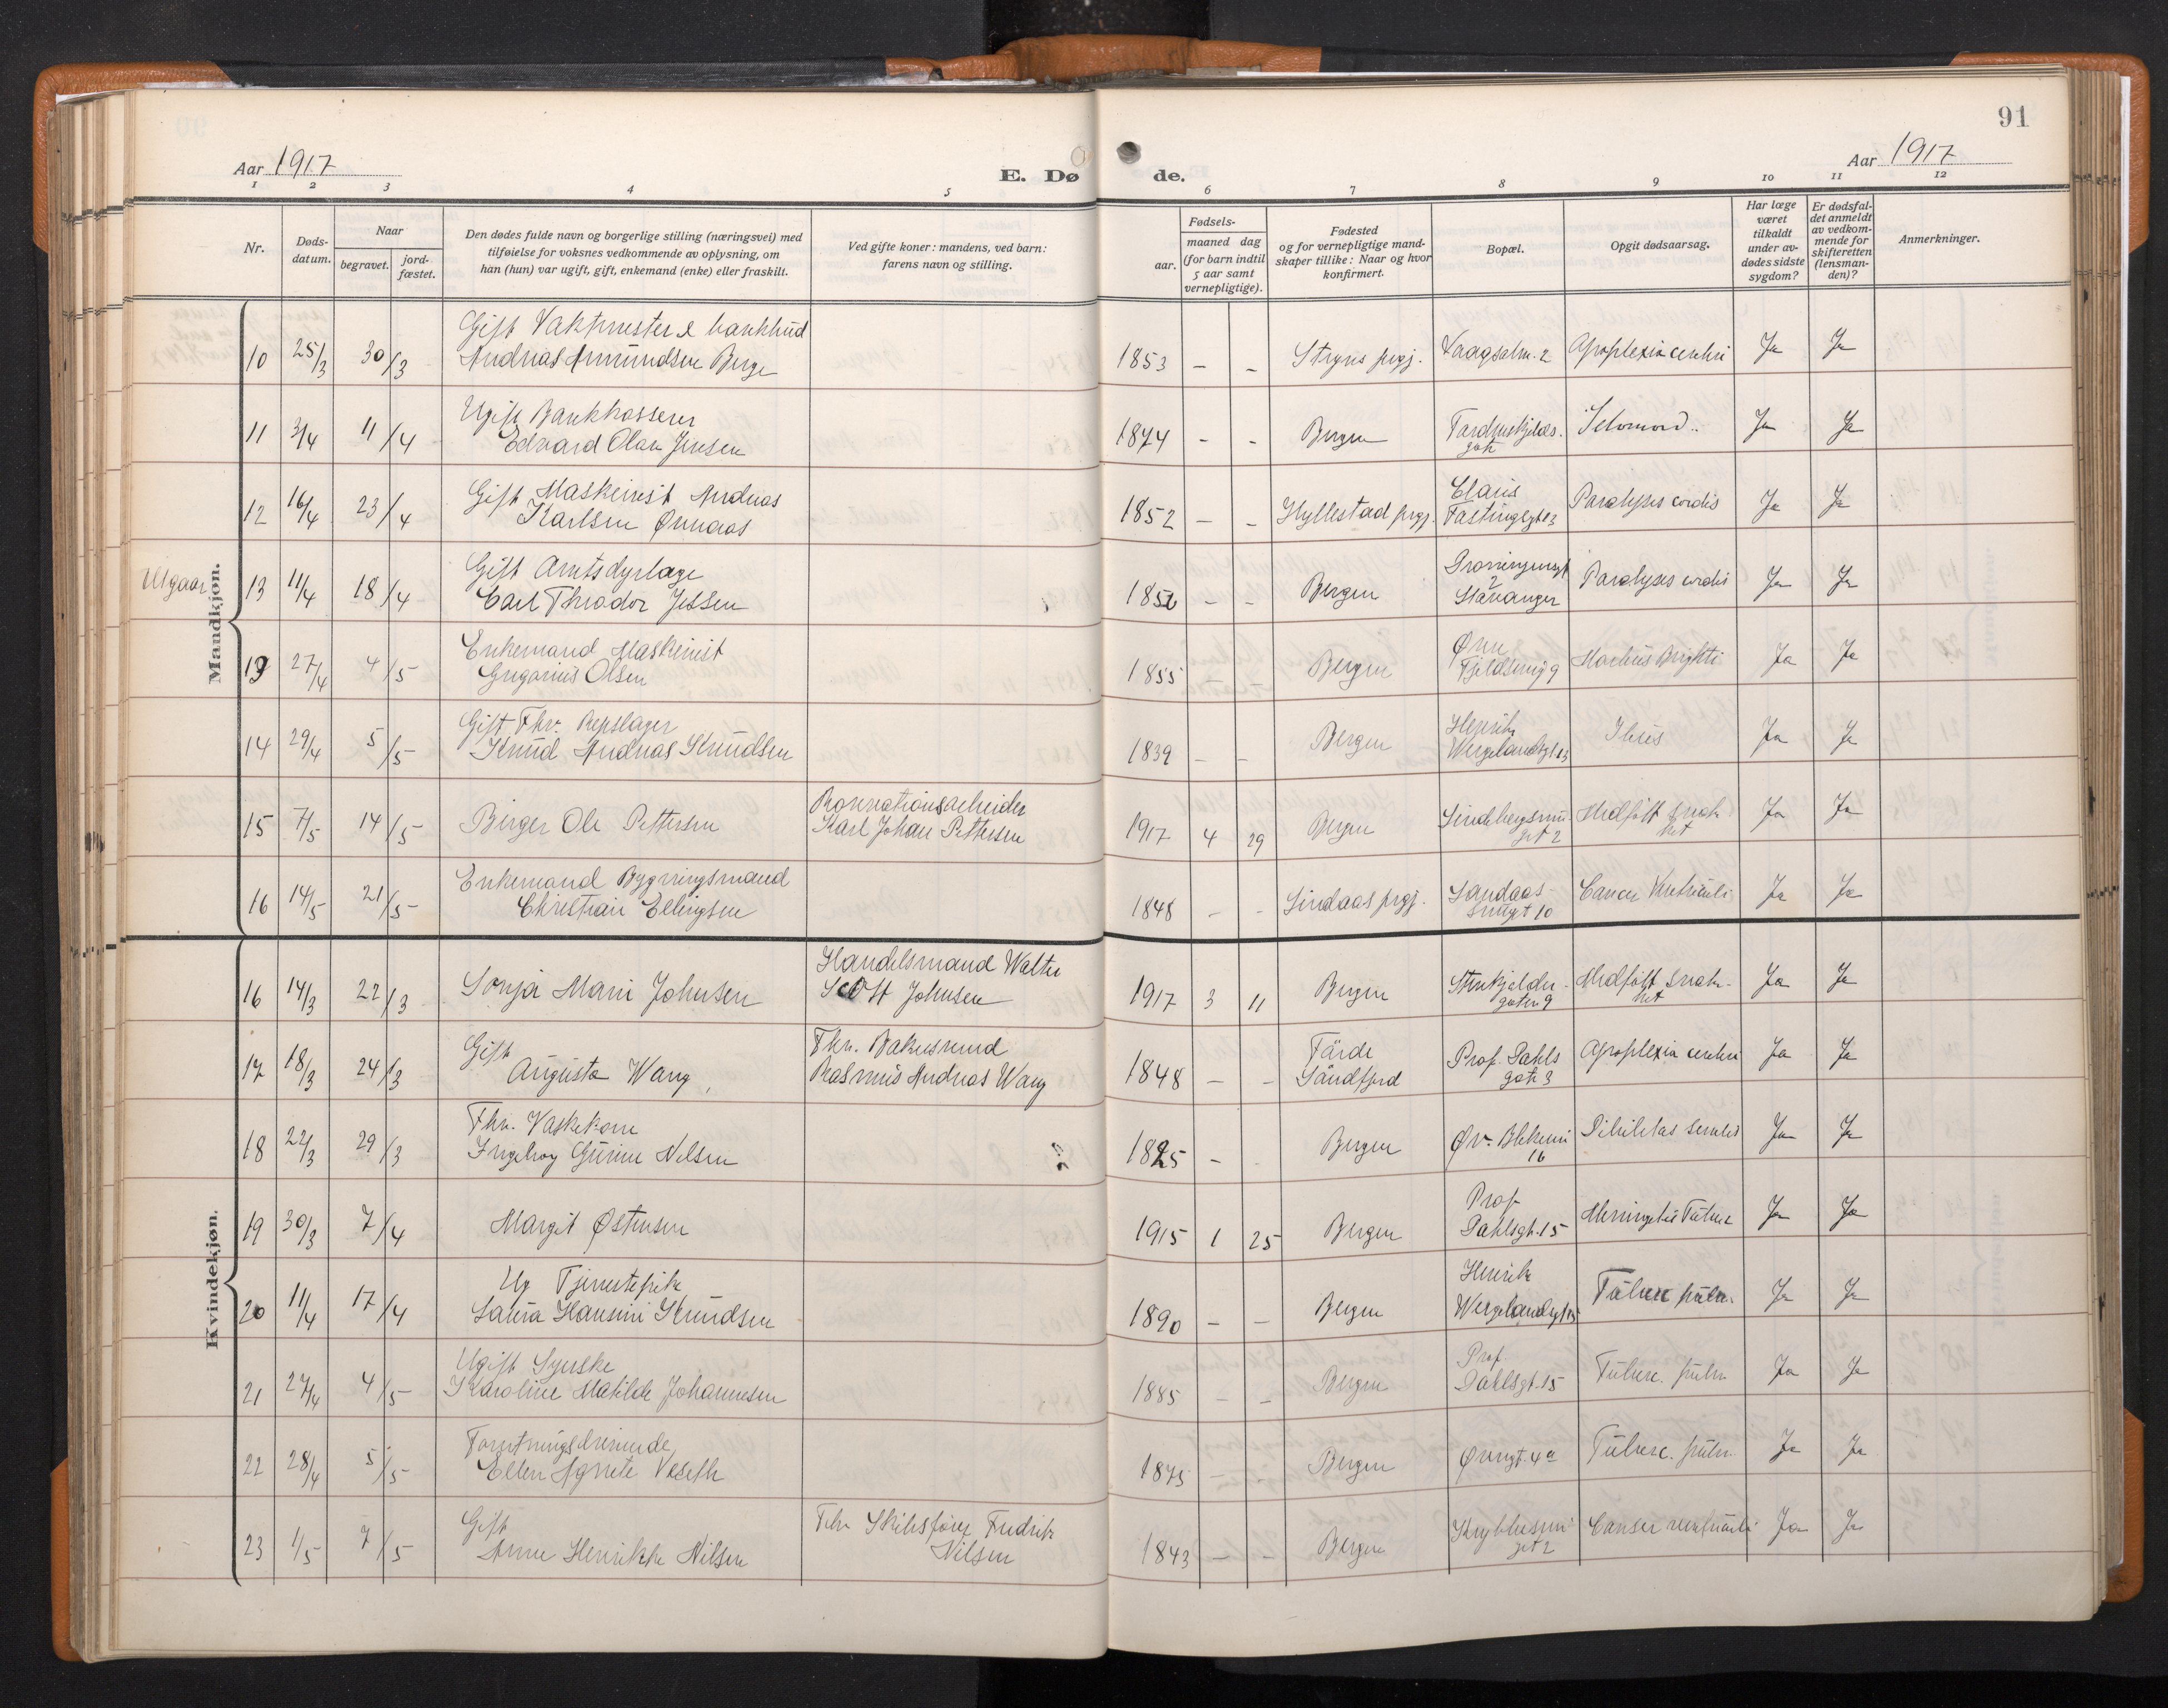 91
Aar 1917
E. Dø
de.
Aar 1917
1 2 3 4 5 6 7 8 9 10 11 12
Nr.
Døds-
datum.
Naar
begravet.
jord-
fæstet.
Den dødes fulde navn og borgerlige stilling (næringsvei) med
tilføielse for voksnes vedkommende av oplysning, om
han (hun) var ugift, gift, enkemand (enke) eller fraskilt.
Ved gifte koner: mandens, ved barn:
farens navn og stilling.
Fødsels-
aar.
maaned dag
(for barn indtil
5 aar samt
vernepligtige).
Fødested
og for vernepligtige mand-
skaper tillike: Naar og hvor
konfirmert.
Bopæl.
Opgit dødsaarsag.
Har læge
været
tilkaldt
under av-
dødes sidste
sygdom?
Er dødsfal-
det anmeldt
av vedkom-
mende for
skifteretten
(lensman-
den)?
Anmerkninger.
Mandkjøn.
Gift Vaktmester
10 25/3 30/3 Andreas Amundsen Berge 1853 - - Stryns prgj. Vaagsalm. 2 Apoplexia cerebri Ja Ja
Ugift Bankkasserer
11 3/4 11/4 Edvard Olan Jensen 1874 - - Bergen Selvmord.. Ja Ja
gate
Gift Maskinist Andreas
12 16/4 23/4 Karlsen Ønnaas 1852 - - Hyllestad prgj. Claus
Fastingsgt 3 Paralyses cordis Ja Ja
Utgaar
Gift Amtsdyrlæge
13 11/4 18/4 Carl Theodor Jessen 1852 - - Bergen
2
Stavanger Paralyses cordis Ja Ja
Enkemand Maskinist
13 27/4 4/5 Gregorius Olsen 1855 Bergen Øvre
Fjeldsmug 9 Morbus Brighti Ja Ja
Gift Fhv. Repslager
14 29/4 5/5 Knud Andreas Knudsen 1839 - - Bergen Henrik
Wergelandsgt 13 Ileus Ja Ja
15 7/5 14/5 Birger Ole Pettersen Renovationsarbeider
Karl Johan Pettersen 1917 4 29 Bergen Lindebergsmu-
get 2 Medfødt svak-
het Ja Ja
Enkemand Bygningsmand
16 14/5 21/5 Christian Ellingsen 1848 - - Lindaas prgj. Sandaas-
smuget 10 Cancer Ventriculi Ja Ja
Kvindekjøn.
16 14/3 22/3 Sonja Marie Johnsen Handelsmand Walter
Scott Johnsen 1917 3 11 Bergen Stenkjelder-
gaten 9 Medfødt svak-
het Ja Ja
Gift
17 18/3 24/3 Augusta Wang Fhv. Bakersvend
Rasmus Andreas Wang 1848 - - Førde
Søndfjord Prof. Dahls
gate 3 Apoplexia cerebri Ja Ja
Fhv. Vaskekone
18 22/3 29/3 Ingeborg Gurine Nilsen 1825 - Bergen Øv. Blekevei
16 Debilitas senilis Ja Ja
19 30/3 7/4 Margit Østensen 1915 1 25 Bergen Prof
Dahlsgt. 15 Meningitis Tuberc Ja Ja
Ug Tjenestepike
20 11/4 17/4 Laura Hansine Knudsen 1890 - - Bergen Henrik
Wergelandsgt 13 Tuberc pulm. Ja Ja
Ugift Syerske
21 27/4 4/5 Karoline Matilde Johannesen 1885 - - Bergen Prof.
Dahlsgt. 15 Tuberc. pulm Ja Ja
Forretningsdrivende
22 28/4 5/5 Ellen Agnete Veseth 1875 - Bergen Øvregt. 4a Tuberc. pulm. Ja Ja
Gift
23 1/5 7/5 Anne Henrikke Nilsen Fhv Skibsfører Fredrik
Nilsen 1843 - - Bergen Krybbesmu-
get 2 Canser ventriculi Ja Ja